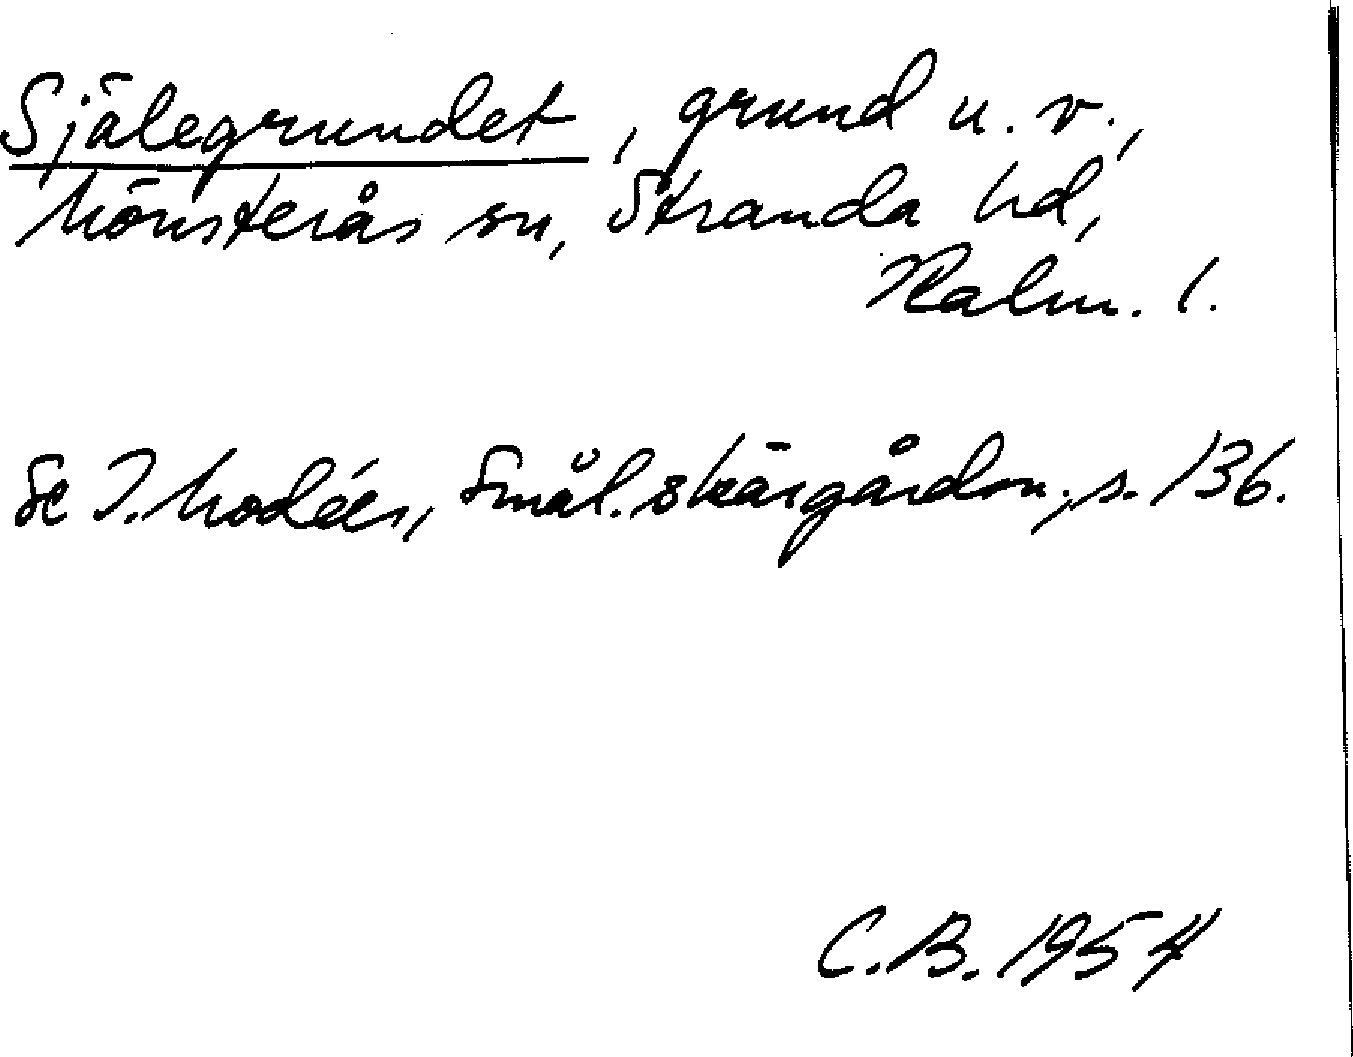 Själegrundet, grund u. v.,
Mönsterås sn, Stranda hd,
Kalm. l.
Se I. Modéer, Smål. skärgården, s. 136.
C.B. 1954